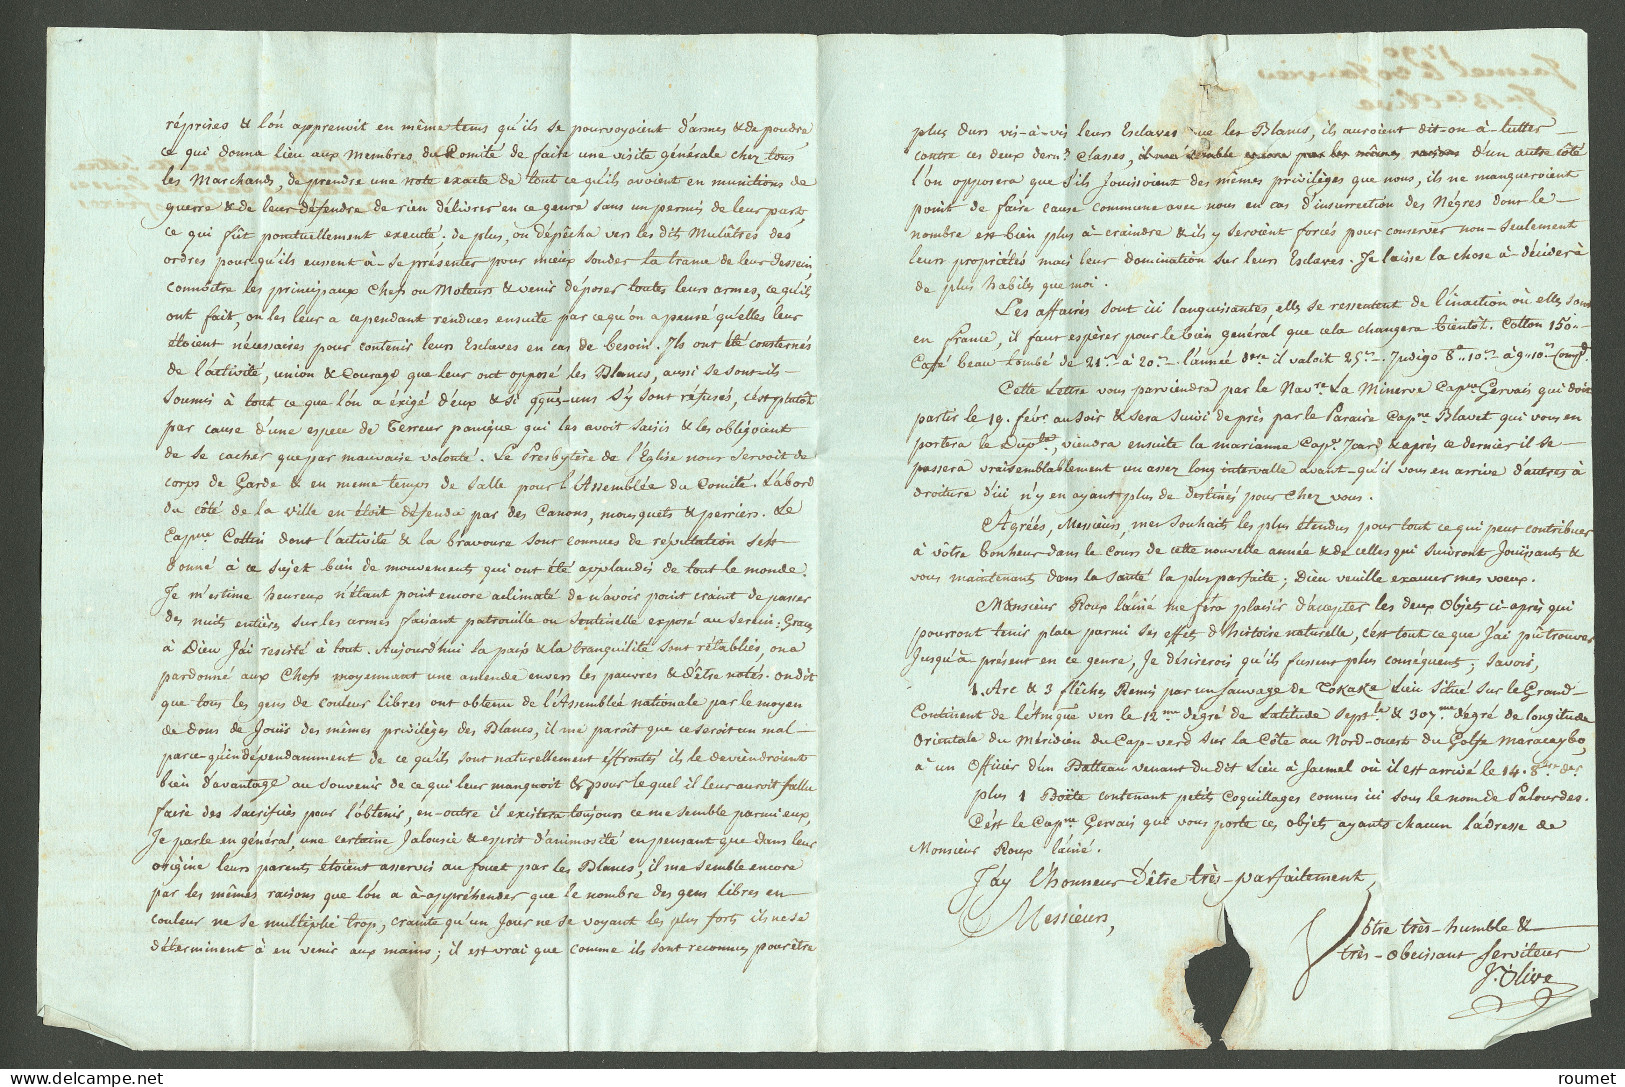 réprises & l'on apprenoit en même tems qu'ils se pourvoyoient d'armes & de poudre
ce qui donna lieu aux Membres du Comité de faire une visite générale chez tous
les Marchands, de prendre une note exacte de tout ce qu'ils avoient en munitions de
guerre & de leur défendre de rien délivrer en ce genre sans un permis de leur part,
ce qui fût ponctuellement executé; de plus, on dépêcha vers les dits Mulâtres des
ordres pour qu'ils eussent à-se présenter pour mieux sonder la trame de leur dessein,
connoître les principaux Chefs ou Moteurs & venir déposer toutes leurs armes, ce qu'ils
ont fait, on les leur a cependant rendues ensuite par ce qu'on a pensé qu'elles leur
étoient nécessaires pour contenir leurs Esclaves en cas de besoin. Ils ont été consternés
de l'activité, union & Courage que leur ont opposé les Blancs, aussi se sont-ils
soumis à tout ce que l'on a éxigé d'eux & si qques-uns s'y sont réfusés, c'est plutôt
par cause d'une espece de Terreur panique qui les avoit saisis & les obligeoient
de se cacher que par mauvaise volonté. Le Presbytère de l'Eglise nous servoit de
corps de Garde & en meme temps de salle pour l'Assemblée du Comité. L'abord
du côté de la ville en étoit défendu par des Canons, mousquets & perriers. Le
Capne Cottin dont l'activité & la bravoure sont connues de reputation s'est
donné à ce sujet bien de mouvements qui ont été applaudis de tout le monde.
Je m'estime heureux n'étant point encore aclimaté de n'avoir point craint de passer
des nuits entières sur les armes faisant patrouille ou sentinelle exposé au serein: Graces
à Dieu J'ai resisté à tout. Aujourd'hui la paix & la tranquilité sont rétablies, on a
pardonné aux Chefs moyennant une amende envers les pauvres & d'être notés. on dit
que tous les gens de couleur libres ont obtenu de l'Assemblée nationale par le moyen
de dons de Jouïr des mêmes privilèges des Blancs, il me paroît que ce seroit un mal
parce-qu'indépendamment de ce qu'ils sont naturellement éffrontés ils le deviendroient
bien d'avantage au souvenir de ce qui leur manquoit & pour lequel il leur auroit fallu
faire des sacrifices pour l'obtenir, en-outre il existera toujours ce me semble parmi eux,
Je parle en général, une certaine Jalousie & esprit d'animosité en pensant que dans leur
origine leurs parents étoient asservis au fouet par les Blancs, il me semble encore
par les mêmes raisons que l'on a à-appréhender que le nombre des gens libres en
couleur ne se multiplie trop, crainte qu'un Jour ne se voyant les plus forts ils ne se
déterminent à en venir aux mains; il est vrai que comme ils sont reconnus pour être
plus durs vis-à-vis leurs Esclaves que les Blancs, ils auroient dit-on à-lutter
contre ces deux dern.s Classes, il me semble encore par les mêmes raisons d'un autre côté
l'on opposera que s'ils Jouissoient des mêmes privilèges que nous, ils ne manqueroient
point de faire cause commune avec nous en cas d'insurrection des Négres dont le
nombre est bien plus à-craindre & ils y seroient forcés pour conserver non-seulement
leurs propriétés mais leur domination sur leurs Esclaves. Je laisse la chose à-décider à
de plus habiles que moi.
Les affaires sont ici languissantes, elles se ressentent de l'inaction où elles sont
en France, il faut espérer pour le bien général que cela changera bientôt. Cotton 150.
Café beau tombé de 21. à 20. l'année dre il valoit 25. Indigo 8. 10. à 9. 10.
Cette Lettre vous parviendra par le Navre La Minerve Capne Gervais qui doit
partir le 19. févr au soir & sera suivi de près par le Paraire Capne Blavet qui vous en
portera le Duplta, viendra ensuite la marianne Capne Icard & après ce dernier il se
passera vraisemblablement un assez long intervalle avant-qu'il vous en arrive d'autres à
droiture d'ici n'y en ayant plus de destinés pour chez vous.
Agréés, Messieurs, mes souhaits les plus étendus pour tout ce qui peut contribuer
à vôtre bonheur dans le cours de cette nouvelle année & de celles qui suivront Jouïssants &
vous maintenants dans la santé la plus parfaite; Dieu veuille exaucer mes voeux.
Monsieur Roux l'ainé me fera plaisir d'accepter les deux Objets ci-après qui
pourront tenir place parmi ses effets d'histoire naturelle, c'est tout ce que J'ai pû trouver
Jusqu'à-présent en ce genre, Je désirerois qu'ils fussent plus conséquent; savoir,
1. Arc & 3 flêches Remis par un sauvage de Tokake Lieu situé sur le Grand
Continent de l'Amque vers le 12me dégré de Latitude Septle & 307me dégré de longitude
Orientale du Méridien du Cap-verd sur la Côte au Nord-ouest du Golfe Maracaybo,
à un Officier d'un Batteau venant du dit Lieu à Jacmel où il est arrivé le 14. 8bre der
plus 1 Boëte contenant petits Coquillages connus ici sous le nom de Palourdes.
C'est le Capne Gervais qui vous porte ces objets ayants chacun l'adresse de
Monsieur Roux l'ainé.
J'ay l'honneur d'être très-parfaitement,
Messieurs,
Vôtre très-humble &
très-obeissant Serviteur
Jn Olive
roumet